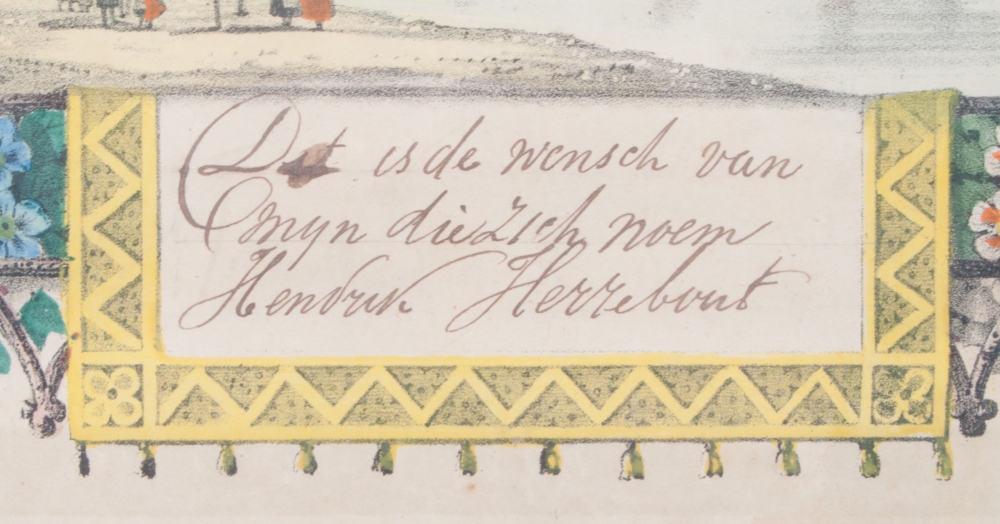 Dat is de wensch van
myn die zich noem
Hendrik Herrebout